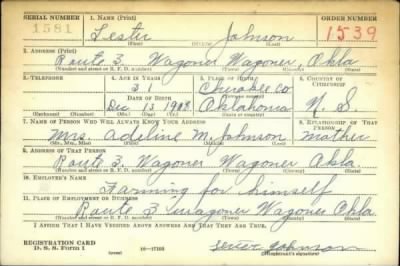 SERIAL NUMBER
1581
1. NAME (Print)
Lester Johnson
(First) (Middle) (Last)
ORDER NUMBER
1539
2. ADDRESS (Print)
Route 3. Wagoner Wagoner, Okla
(Number and street or R. F. D. number) (Town) (County) (State)
3. TELEPHONE
4. AGE IN YEARS
31
DATE OF BIRTH
Dec 13 1908
5. PLACE OF BIRTH
Cherokee Co
Oklahoma
6. COUNTRY OF CITIZENSHIP
U. S.
7. NAME OF PERSON WHO WILL ALWAYS KNOW YOUR ADDRESS
Mrs. Adeline M. Johnson
(Mr., Mrs., Miss) (First) (Middle) (Last)
8. RELATIONSHIP OF THAT PERSON
Mother
9. ADDRESS OF THAT PERSON
Route 3. Wagoner Wagoner Okla
(Number and street or R. F. D. number) (Town) (County) (State)
10. EMPLOYER'S NAME
Farming for himself
11. PLACE OF EMPLOYMENT OR BUSINESS
Route 3 Wagoner Wagoner Okla
(Number and street or R. F. D. number) (Town) (County) (State)
I AFFIRM THAT I HAVE VERIFIED ABOVE ANSWERS AND THAT THEY ARE TRUE.
REGISTRATION CARD
D. S. S. Form 1
(over)
Johnson
(Registrant's signature)